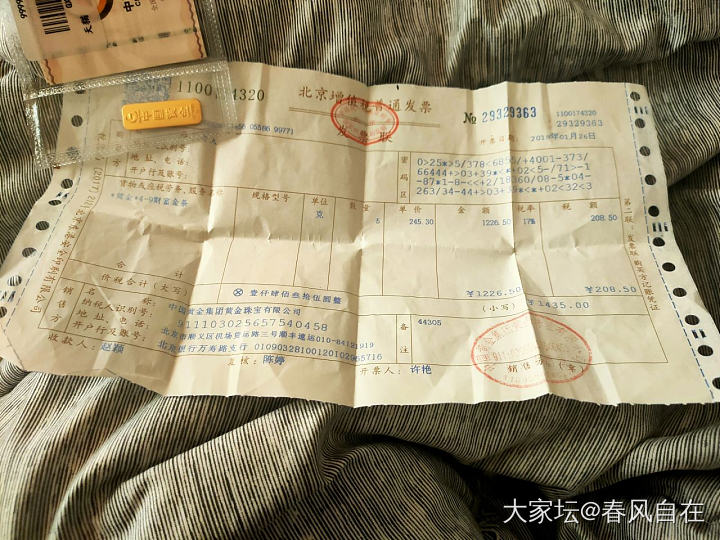 9999
天猫
中国黄金
1100174320
北京增值税普通发票
发票联
№ 29329363
1100174320
29329363
开票日期: 2018年01月26日
地址、电话:
开户行及账号:
密码区
0>25*>5/378<6850/+4001-373/
66444+>03+39*<*+02<5-/71>1
-87*1-8-<<+2/18360/08-5*04-
263/34-44+>03+39*<*+02<32<3
货物及应税劳务、服务名称 规格型号 单位 数量 单价 金额 税率 税额
克 5 245.30 1226.50 17% 208.50
合计 ￥1226.50 ￥208.50
价税合计(大写) ⊗ 壹仟肆佰叁拾伍圆整 (小写) ￥1435.00
销售方
名称: 中国黄金集团黄金珠宝有限公司
纳税人识别号: 911103025657540458
地址、电话: 北京市顺义区机场货运路三号顺丰速运010-84121919
开户行及账号: 北京银行万寿路支行 01090328100120102965716
备注
44305
收款人: 赵颖
复核: 陈婷
开票人: 许艳
销售方:(章)
第二联:发票联 购买方记账凭证
大家坛@春风自在